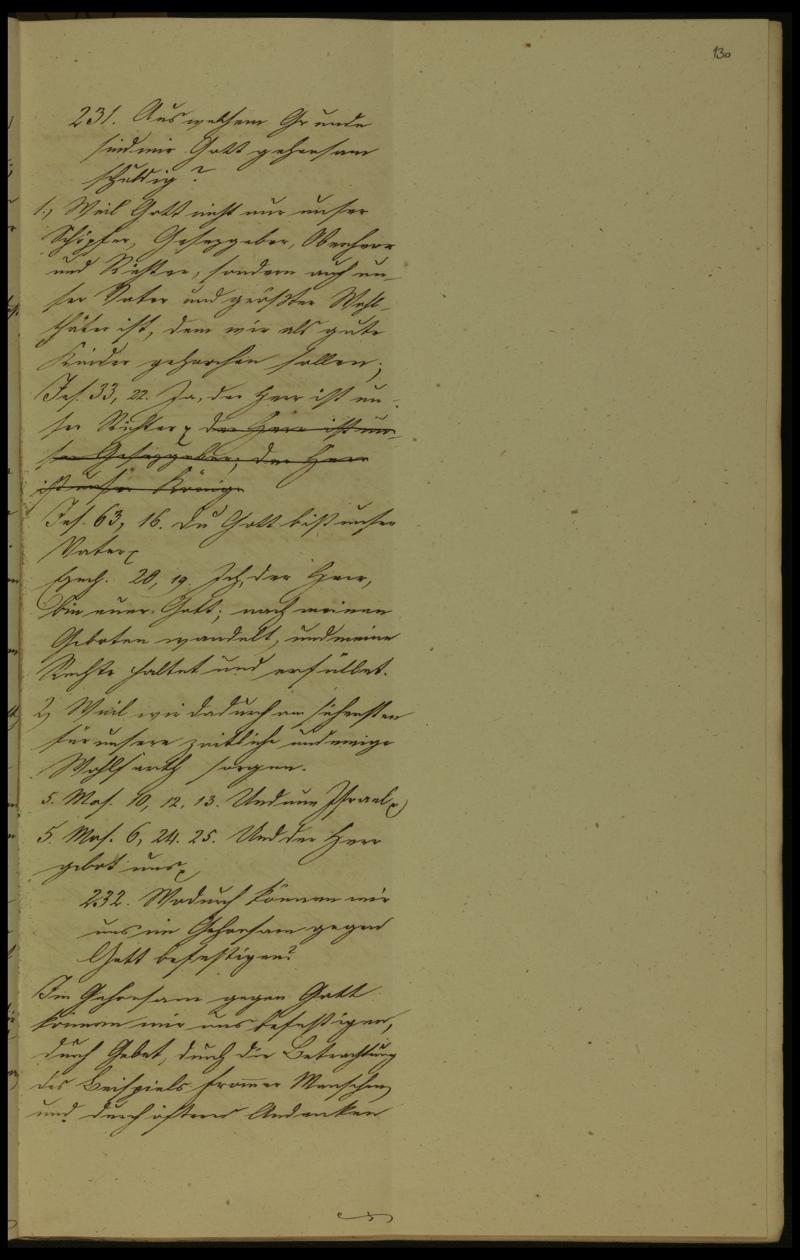 130
231. Aus welchem Grunde
sind wir Gott gehorsam
schuldig?
1.) Weil Gott nicht nur unser
Schöpfer, Gesezgeber, Oberherr
und Richter, sondern auch un-
ser Vater und größter Wohl-
thäter ist, dem wir als gute
Kinder gehorchen sollen;
Jes. 33, 22. Ja, der Herr ist un-
ser Richter der Herr ist un-
ser Gesezgeber; der Herr
ist unser König
Jes. 63, 16. Du Gott bist unser
Vater
Ezech. 20, 19. Ich, der Herr,
bin euer Gott; nach meinen
Geboten wandelt, und meine
Rechte haltet und erfüllet.
2) Weil wir dadurch am sichersten
für unsere zeitliche und ewige
Wohlfarth sorgen.
5. Mos. 10, 12. 13. Und nun Israel
5. Mos. 6, 24. 25. Und der Herr
gebot uns
232. Wodurch können wir
uns im Gehorsam gegen
Gott befestigen?
Im Gehorsam gegen Gott
können wir uns befestigen,
durch Gebet, durch die Betrachtung
des Beispiels frommer Menschen
und durch öfteres Andenken